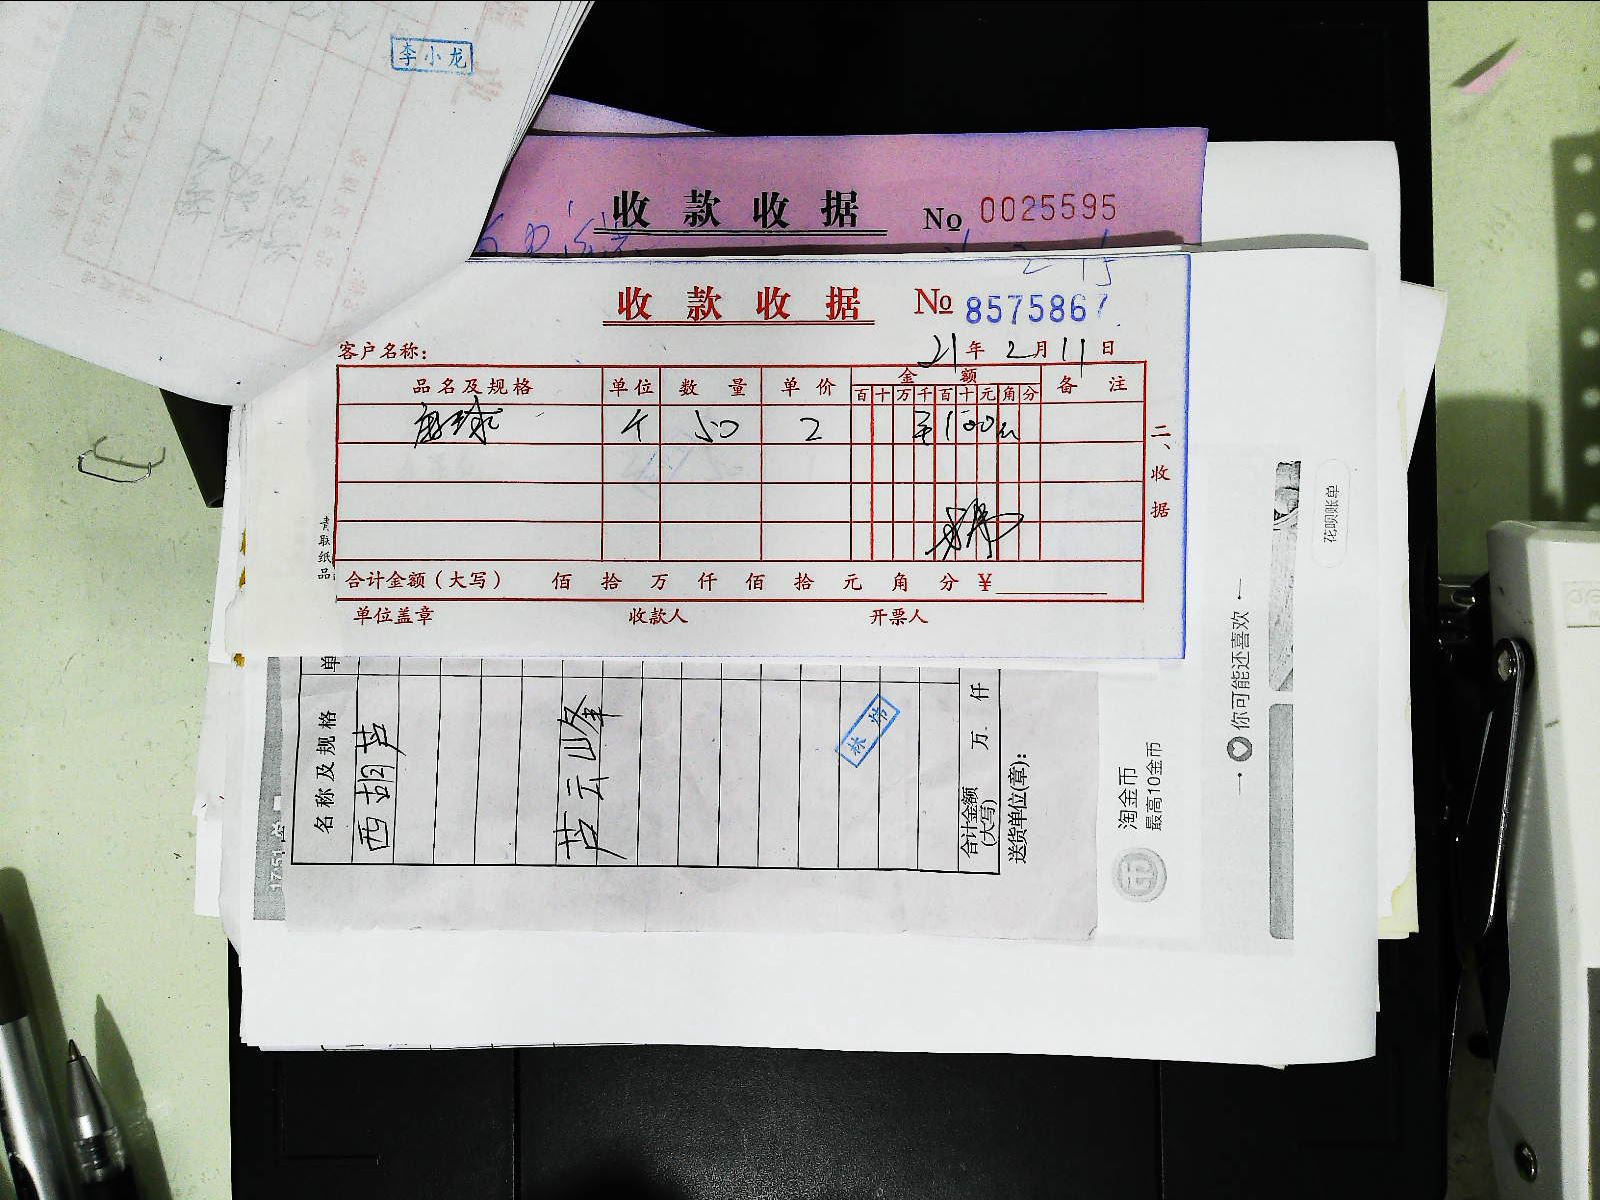 李小龙
收款收据 No 0025595
2 15
收款收据 No 8575867
客户名称: 21年2月11日
品名及规格 单位 数量 单价 金额 备注
百十万千百十元角分
球 个 50 2 ¥100元
二、收据
青联纸品
合计金额(大写) 佰 拾 万 仟 佰 拾 元 角 分 ¥
单位盖章 收款人 开票人
17:51
名称及规格 单
西胡芦
芦云山峰
林炜
合计金额(大写) 万 仟
送货单位(章):
淘金币
最高10金币
你可能还喜欢
花呗账单